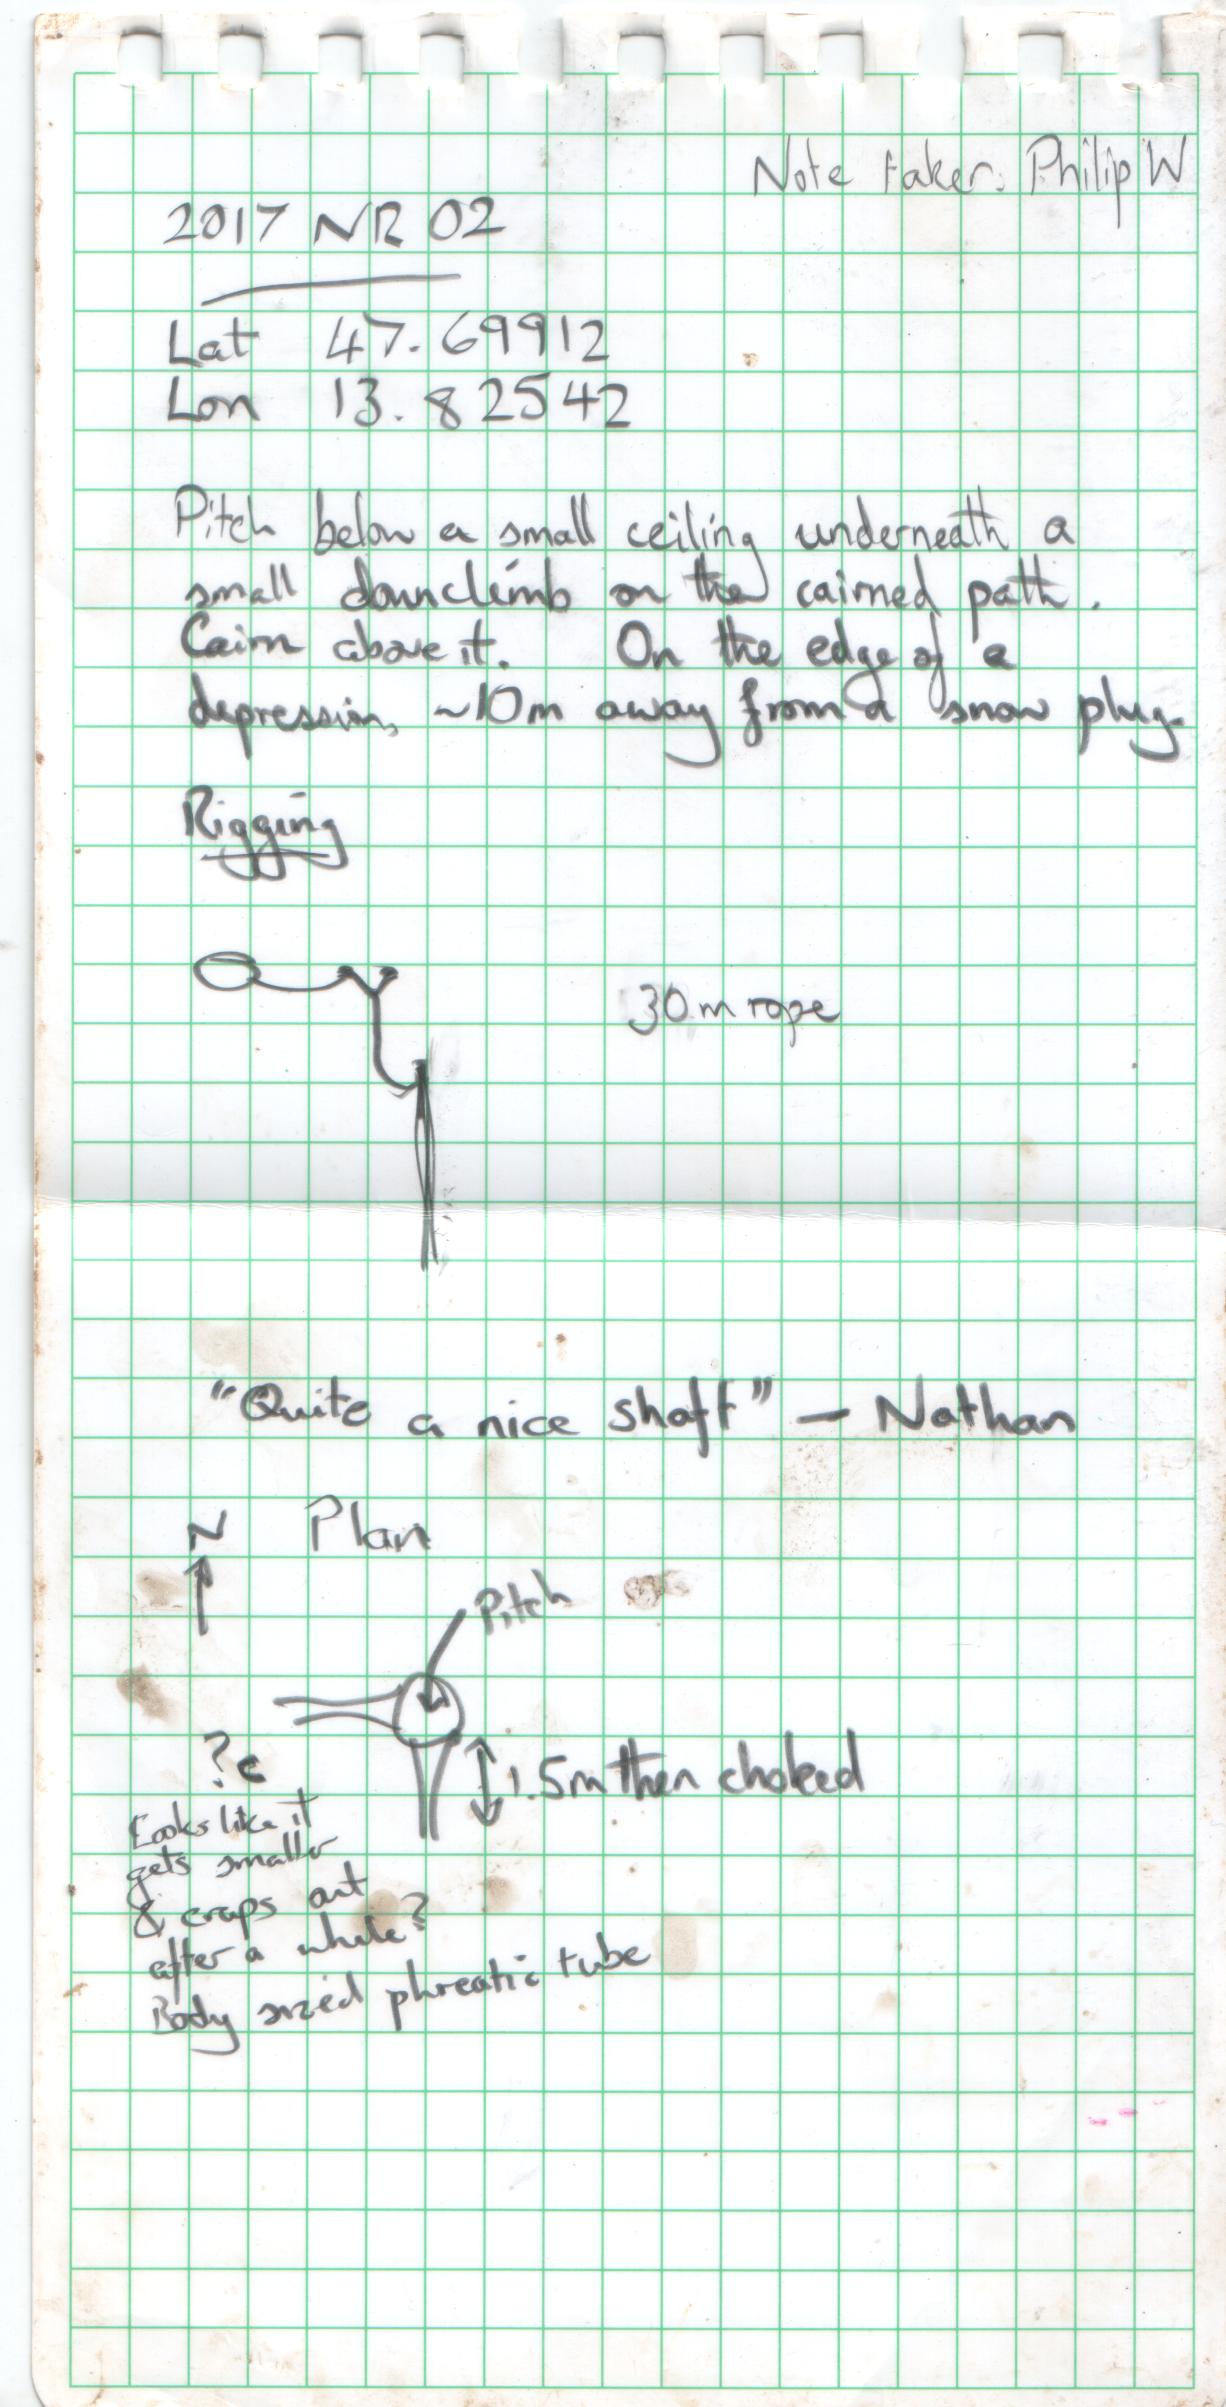 Note taker: Philip W
2017 NR 02
Lat 47.69912
Lon 13.82542
Pitch below a small ceiling underneath a
small downclimb on the cairned path.
Cairn above it. On the edge of a
depression, ~10m away from a snow plug.
Rigging
30m rope
"Quite a nice shaft" – Nathan
N Plan
Pitch
?c
1.5m then choked
Looks like it
gets smaller
& craps out
after a while?
Body sized phreatic tube